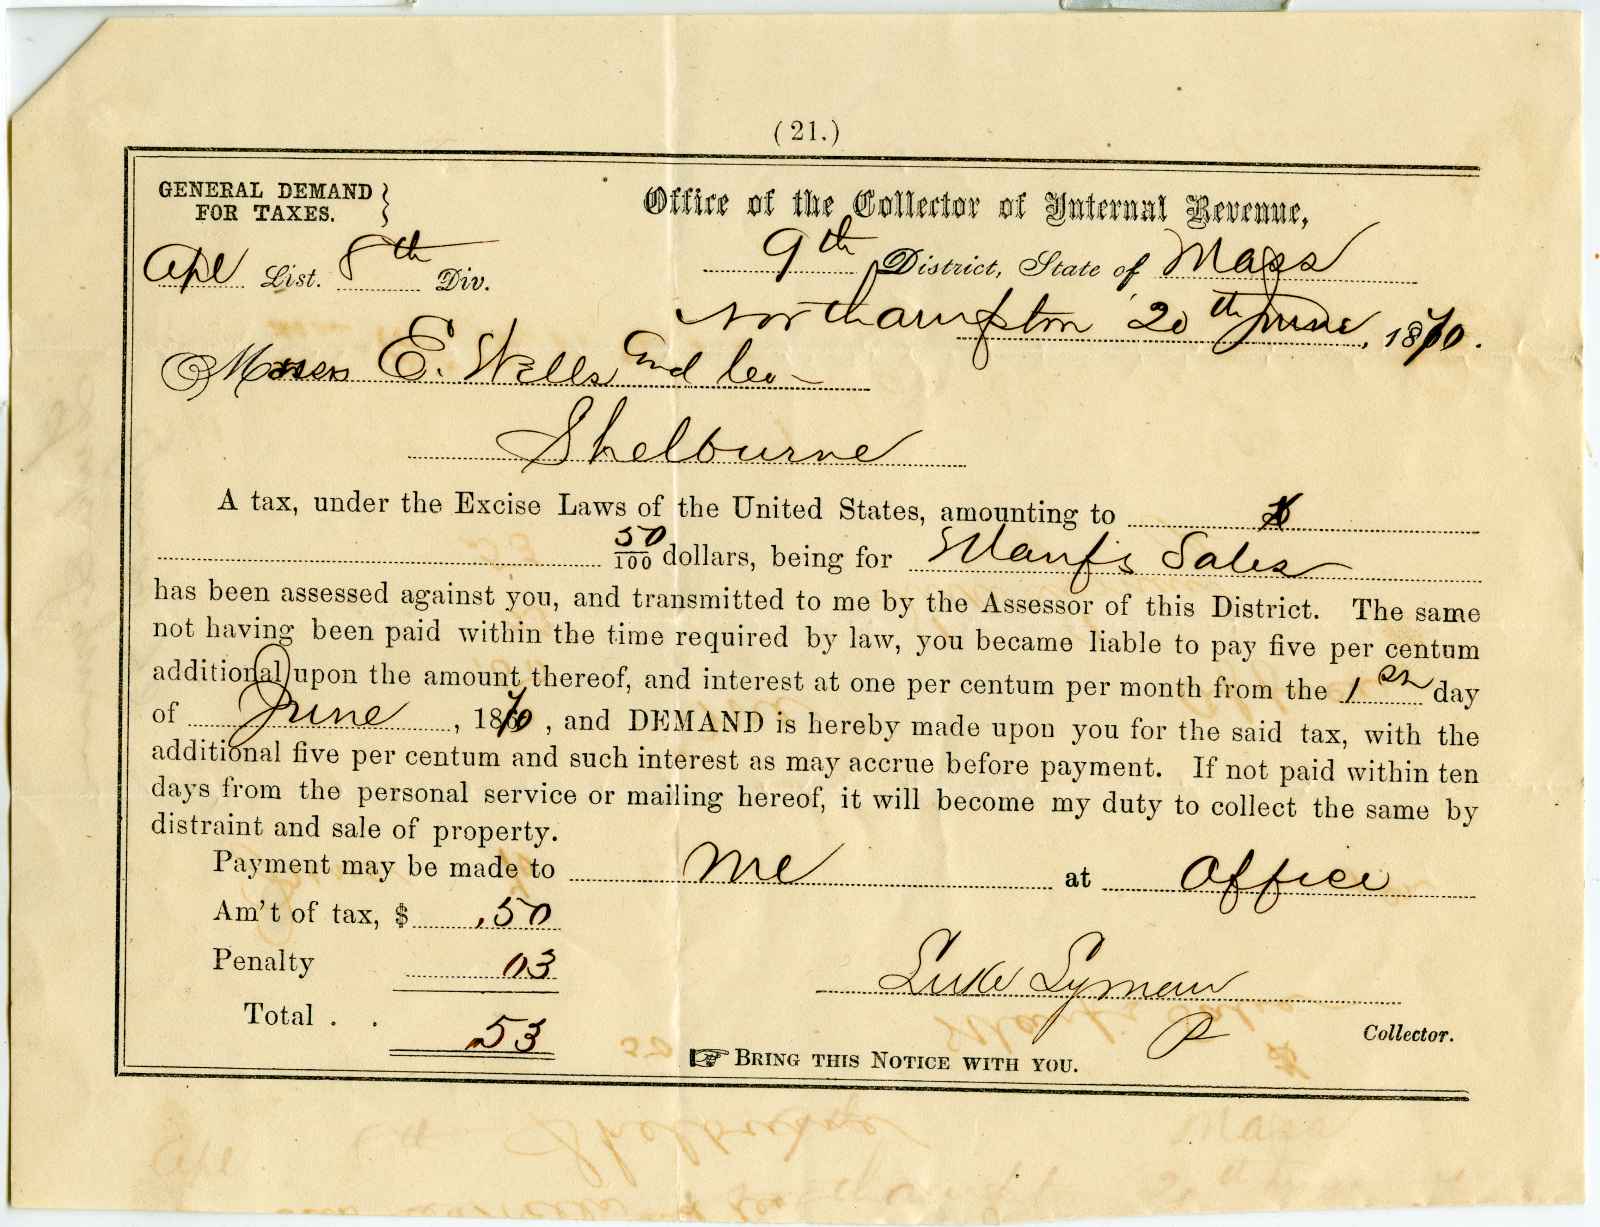 (21.)
GENERAL DEMAND
FOR TAXES.
Office of the Collector of Internal Revenue,
Apl List. 8th Div.
9th District, State of Mass
Northampton 20th June, 1870.
Messrs E. Wells and Co
Shelburne
A tax, under the Excise Laws of the United States, amounting to
50/100 dollars, being for Manf's Sales
has been assessed against you, and transmitted to me by the Assessor of this District. The same
not having been paid within the time required by law, you became liable to pay five per centum
additional upon the amount thereof, and interest at one per centum per month from the 1st day
of June, 1870, and DEMAND is hereby made upon you for the said tax, with the
additional five per centum and such interest as may accrue before payment. If not paid within ten
days from the personal service or mailing hereof, it will become my duty to collect the same by
distraint and sale of property.
Payment may be made to me at office
Am't of tax, $ .50
Penalty 03
Total . . .53
Luke Lyman
Collector.
BRING THIS NOTICE WITH YOU.